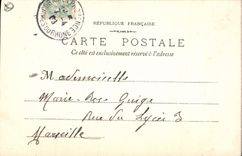 RÉPUBLIQUE FRANÇAISE
CARTE POSTALE
Ce côté est exclusivement réservé à l'adresse
Mademoiselle
Marie-Rose Guige
Rue du Lycée 3
Marseille